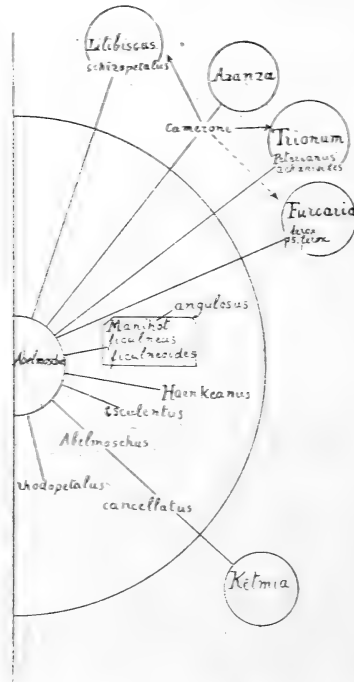 Lilibiscus
schizopetalus
Azanza
Cameroni
Trionum
Petreianus
achanioides
Furcaria
ferox
ps. ferox
angulosus
Manihot
ficulneus
ficulneoides
Haenkeanus
esculentus
Abelmoschus
rhodopetalus
cancellatus
Ketmia